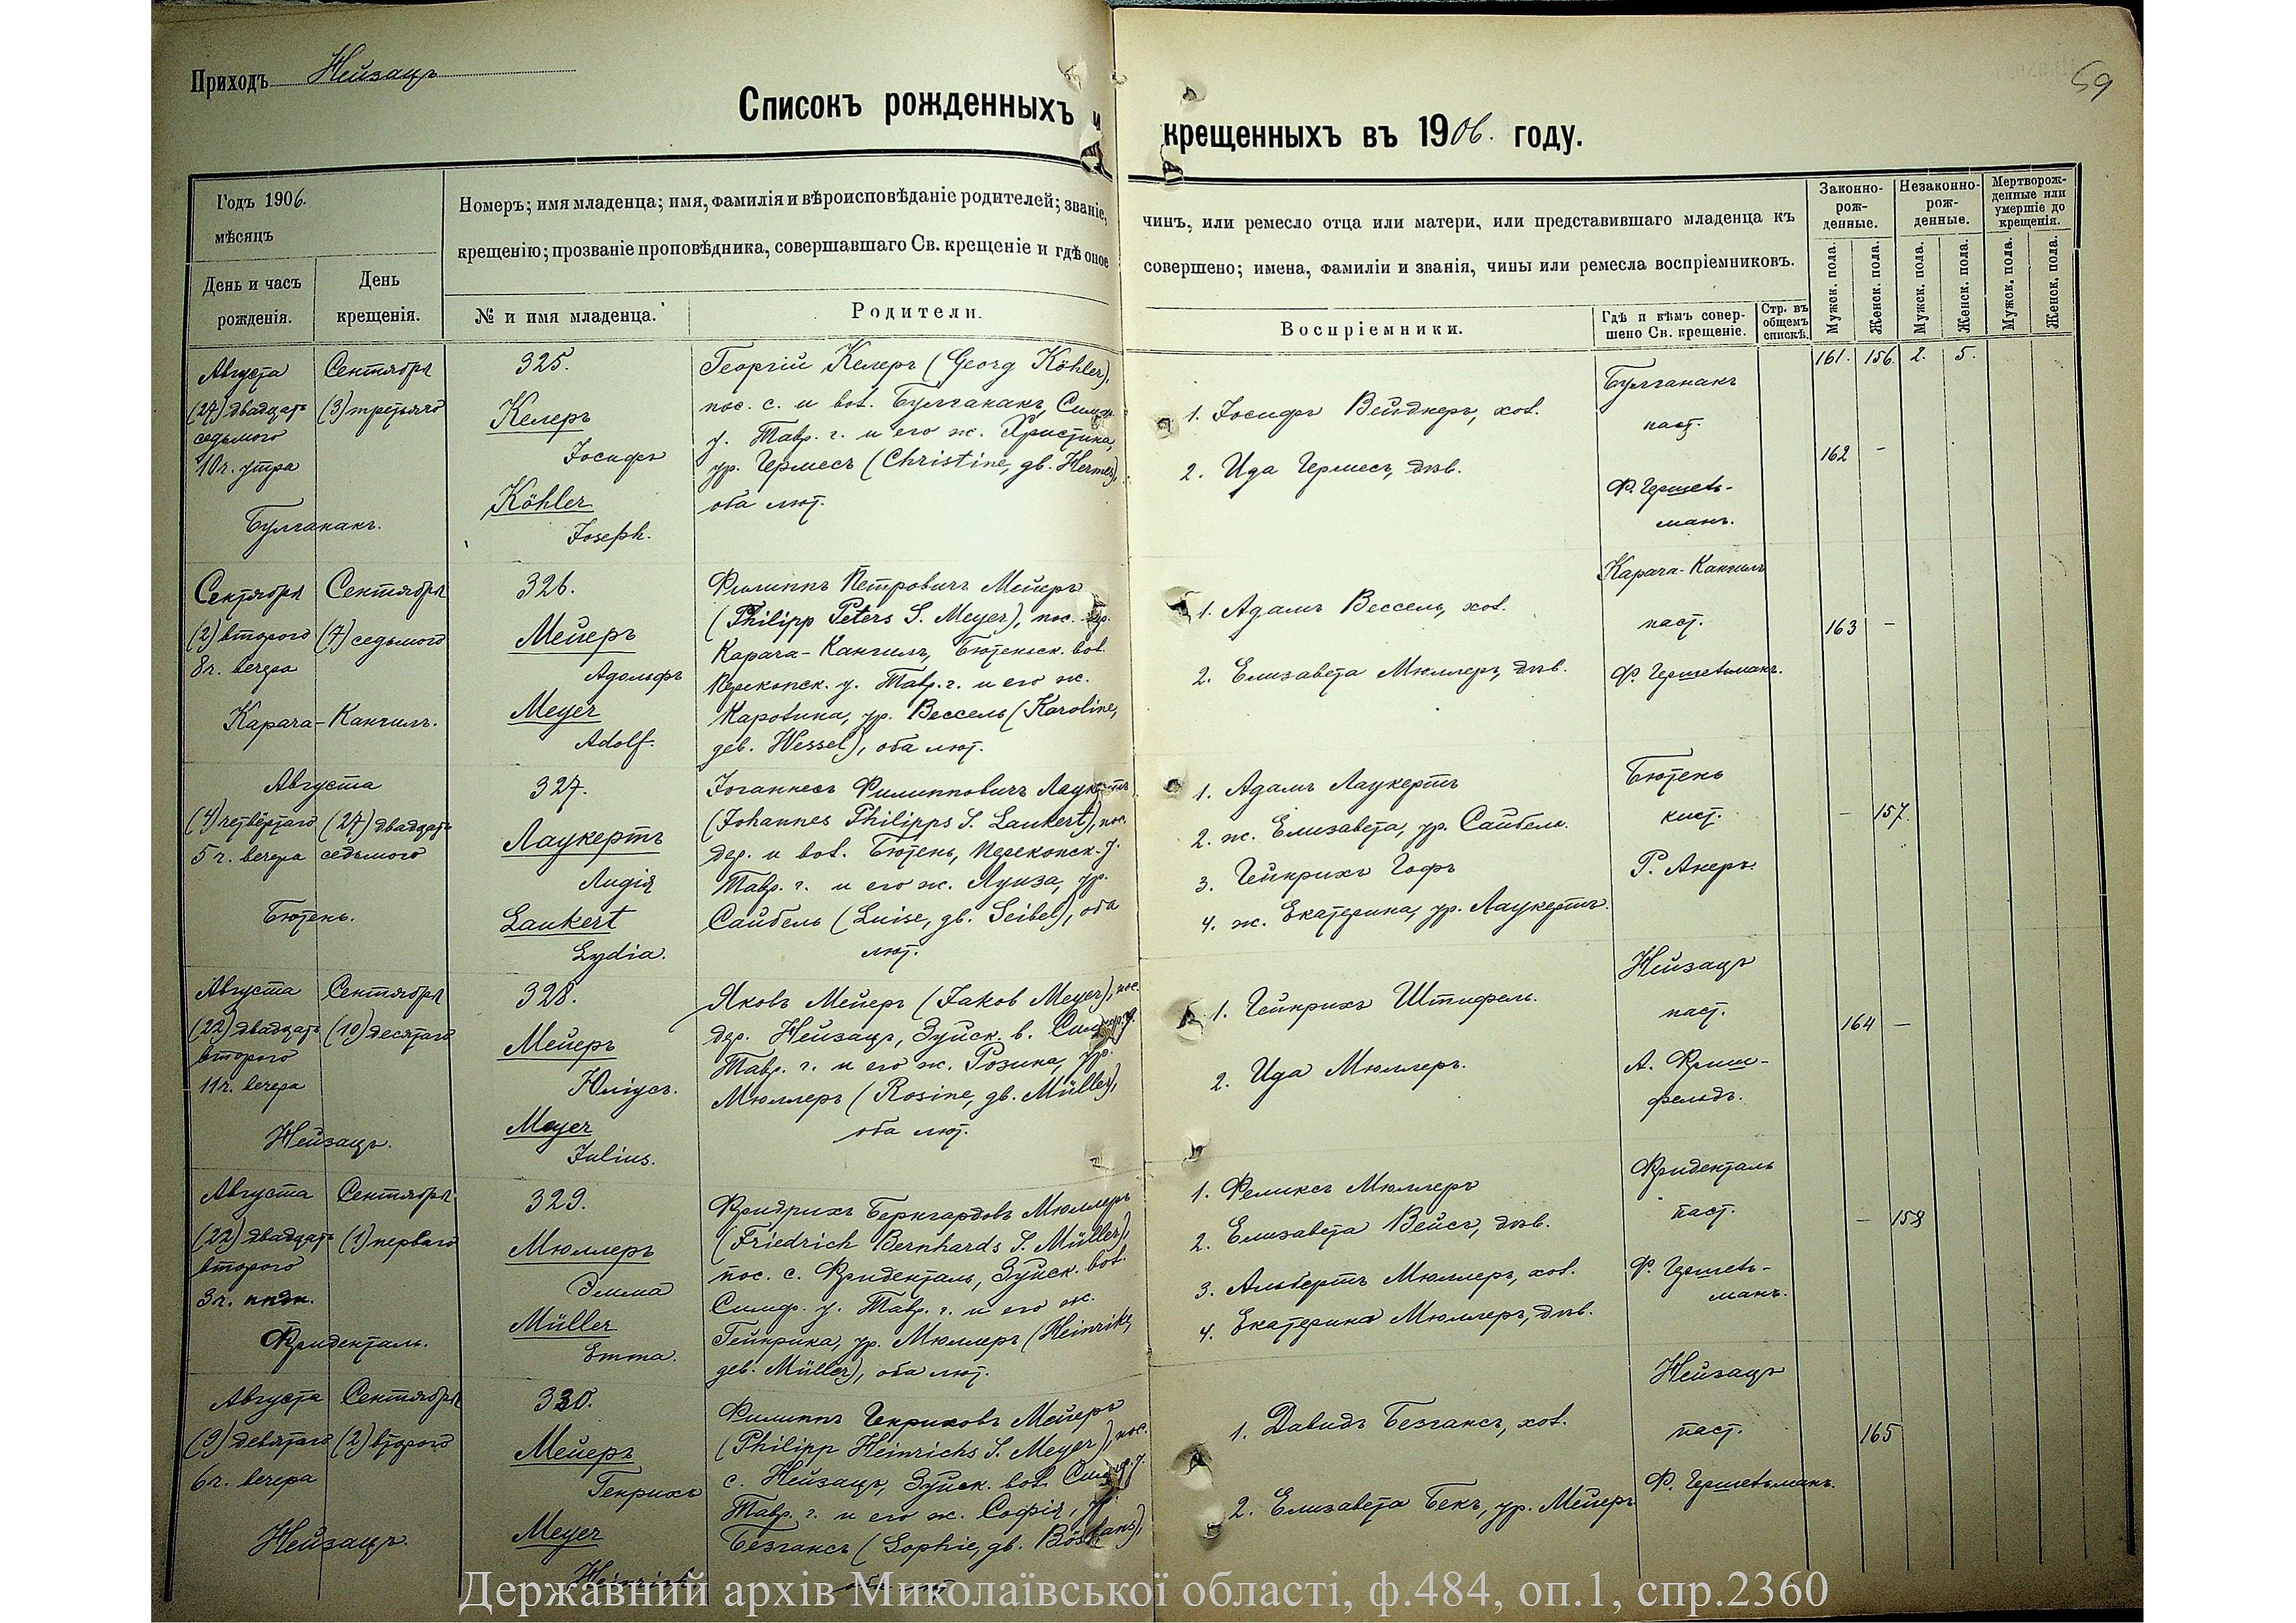 Приходъ Нейзацъ
59
Списокъ рожденныхъ и крещенныхъ въ 1906. году.
Годъ 1906.
мѣсяцъ
День и часъ рожденія.
День крещенія.
Номеръ; имя младенца; имя, фамилія и вѣроисповѣданіе родителей; званіе, чинъ, или ремесло отца или матери, или представившаго младенца къ
крещенію; прозваніе проповѣдника, совершавшаго Св. крещеніе и гдѣ оное совершено; имена, фамиліи и званія, чины или ремесла воспріемниковъ.
№ и имя младенца.
Родители.
Воспріемники.
Гдѣ и кѣмъ совершено Св. крещеніе.
Стр. въ общемъ спискѣ.
Законно-рожденные.
Незаконно-рожденные.
Мертворожденные или умершіе до крещенія.
Мужск. пола.
Женск. пола.
Мужск. пола.
Женск. пола.
Мужск. пола.
Женск. пола.
161. 156. 2. 5.
Августа
(27) двадцать
седьмого
10 ч. утра
Сентября
(3) третьяго
Булганакъ.
325.
Келеръ
Іосифъ
Köhler
Joseph.
Георгій Келеръ (Georg Köhler),
пос. с. и вол. Булганакъ, Симф.
у. Тавр. г. и его ж. Христина,
ур. Гермесъ (Christine, gb. Hermes),
оба лют.
1. Іосифъ Вейднеръ, хол.
2. Ида Гермесъ, дѣв.
Булганакъ
паст.
Ф. Гершель-
манъ.
162 -
Сентября
(2) второго
8 ч. вечера
Сентября
(7) седьмого
Карача-Кангилъ.
326.
Мейеръ
Адольфъ
Meyer
Adolf.
Филиппъ Петровичъ Мейеръ
(Philipp Peters S. Meyer), пос. дер.
Карача-Кангилъ, Бютеньск. вол.
Перекопск. у. Тавр. г. и его ж.
Каролина, ур. Вессель (Karoline,
geb. Wessel), оба лют.
1. Адамъ Вессель, хол.
2. Елизавета Мюллеръ, дѣв.
Карача-Кангилъ
паст.
Ф. Гершельманъ.
163 -
Августа
(4) четвёртаго
5 ч. вечера
(27) двадцать
седьмого
Бютень.
327.
Лаукертъ
Лидія
Laukert
Lydia.
Іоганнесъ Филипповичъ Лаукертъ
(Johannes Philipps S. Laukert), пос.
дер. и вол. Бютень, Перекопск. у.
Тавр. г. и его ж. Луиза, ур.
Сайбель (Luise, gb. Seibel), оба
лют.
1. Адамъ Лаукертъ
2. ж. Елизавета, ур. Сайбель.
3. Гейнрихъ Гофъ
4. ж. Екатерина, ур. Лаукертъ.
Бютень
кист.
Р. Анеръ.
- 157.
Августа
(22) двадцать
второго
11 ч. вечера
Сентября
(10) десятаго
Нейзацъ.
328.
Мейеръ
Юліусъ.
Meyer
Julius.
Яковъ Мейеръ (Jakob Meyer), пос.
дер. Нейзацъ, Зуйск. в. Симфер. у.
Тавр. г. и его ж. Розина, ур.
Мюллеръ (Rosine, gb. Müller),
оба лют.
1. Гейнрихъ Штифель.
2. Ида Мюллеръ.
Нейзацъ
паст.
А. Фриш-
фельдъ.
164 -
Августа
(22) двадцать
второго
3 ч. ппдн.
Сентября
(1) перваго
Фриденталь.
329.
Мюллеръ
Эмма
Müller
Emma.
Фридрихъ Бернгардовъ Мюллеръ
(Friedrich Bernhards S. Müller),
пос. с. Фриденталь, Зуйск. вол.
Симф. у. Тавр. г. и его ж.
Гейнрика, ур. Мюллеръ (Heinrike,
geb. Müller), оба лют.
1. Феликсъ Мюллеръ
2. Елизавета Вейсъ, дѣв.
3. Альбертъ Мюллеръ, хол.
4. Екатерина Мюллеръ, дѣв.
Фриденталь
паст.
Ф. Гершель-
манъ.
- 158
Августа
(9) девятаго
6 ч. вечера
Сентября
(2) второго
Нейзацъ.
330.
Мейеръ
Генрихъ
Meyer
Heinrich
Филиппъ Генриховъ Мейеръ
(Philipp Heinrichs S. Meyer), пос.
с. Нейзацъ, Зуйск. вол. Симф. у.
Тавр. г. и его ж. Софія, ур.
Безгансъ (Sophie, gb. Böshans),
оба лют.
1. Давидъ Безгансъ, хол.
2. Елизавета Бекъ, ур. Мейеръ
Нейзацъ
паст.
Ф. Гершельманъ.
165
Державний архів Миколаївської області, ф.484, оп.1, спр.2360